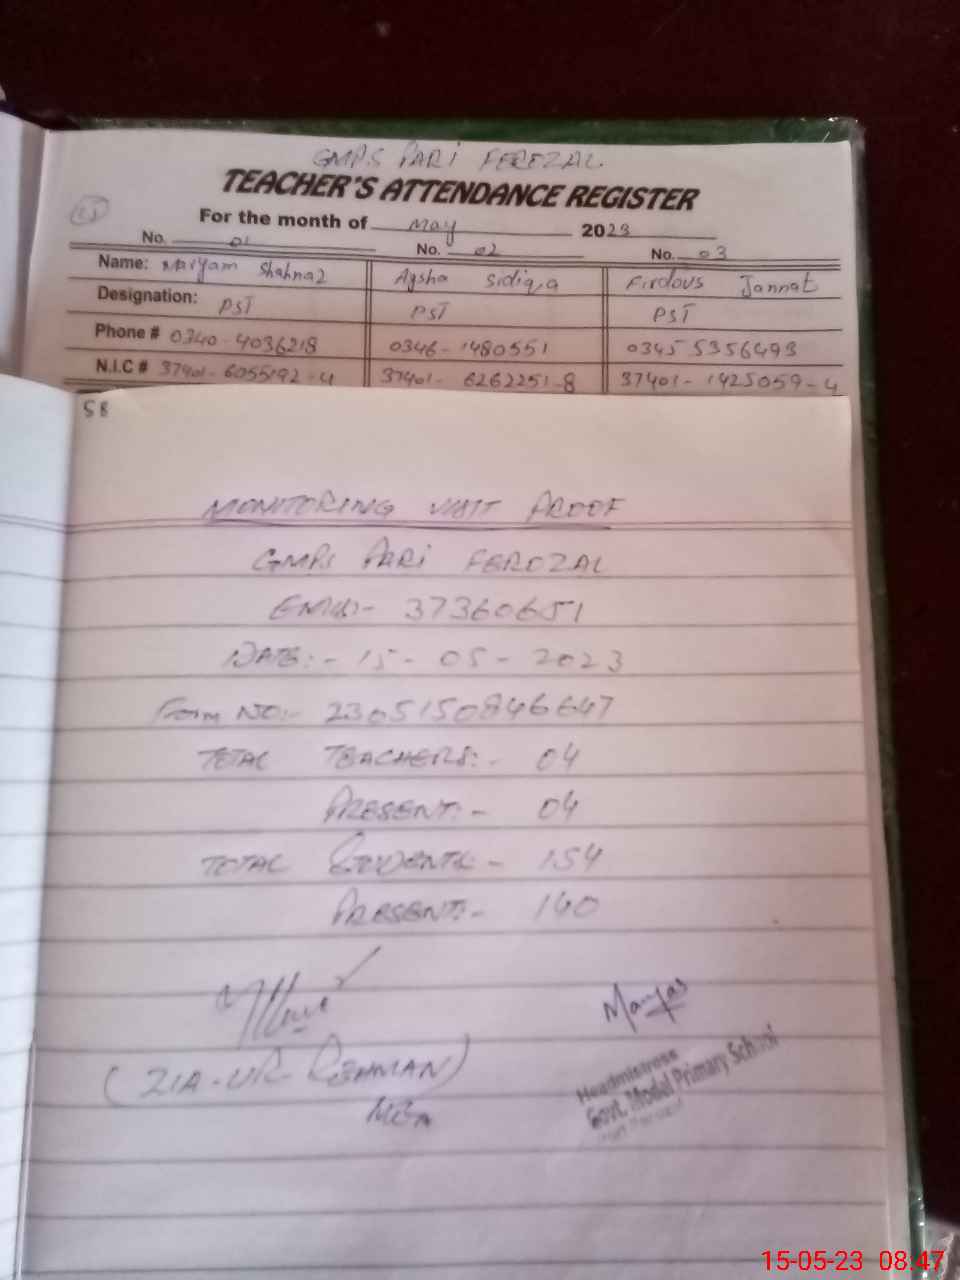 GMPS PARI FEROZAL
TEACHER'S ATTENDANCE REGISTER
For the month of May 2023
No. 01 No. 02 No. 03
Name: Maryam Shahnaz Aysha Sidiqa Firdous Jannat
Designation: PST PST PST
Phone # 0340-4036218 0346-1480551 0345 5356493
N.I.C # 37401-6055192-4 37401-6262251-8 37401-1425059-4
58
MONITORING VISIT PROOF
GMPS PARI FEROZAL
EMIS:- 37360651
DATE:- 15-05-2023
Form NO:- 2305150846647
TOTAL TEACHERS:- 04
PRESENT:- 04
TOTAL STUDENTS:- 154
PRESENT:- 140
(ZIA-UR-REHMAN)
MEA
Headmistress
Govt. Model Primary School
15-05-23 08:47